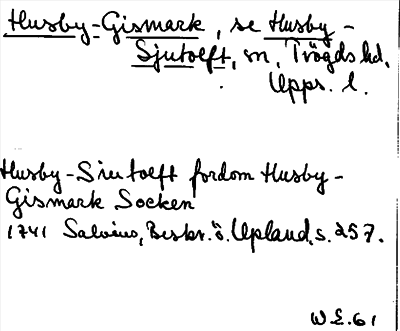 Husby-Gismark, se Husby-
Sjutolft, sn, Trögds hd,
Upps. l.
Husby-Siutolft fordom Husby-
Gismark Socken
1741 Salvius, Beskr. ö. Upland, s. 257.
W E. 61